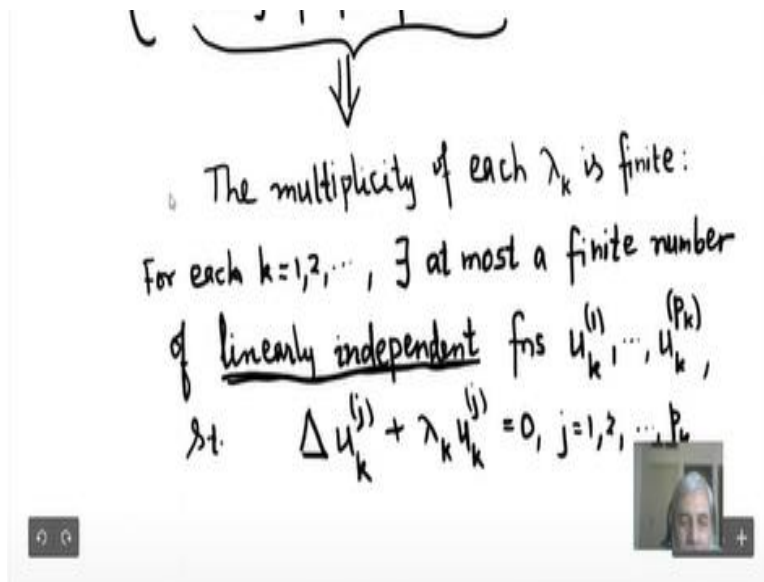 The multiplicity of each λ_k is finite:
For each k=1,2,⋯, ∃ at most a finite number
of linearly independent fns u_k^(1),⋯,u_k^(p_k),
s.t. Δu_k^(j) + λ_k u_k^(j) = 0, j=1,2,⋯,p_k